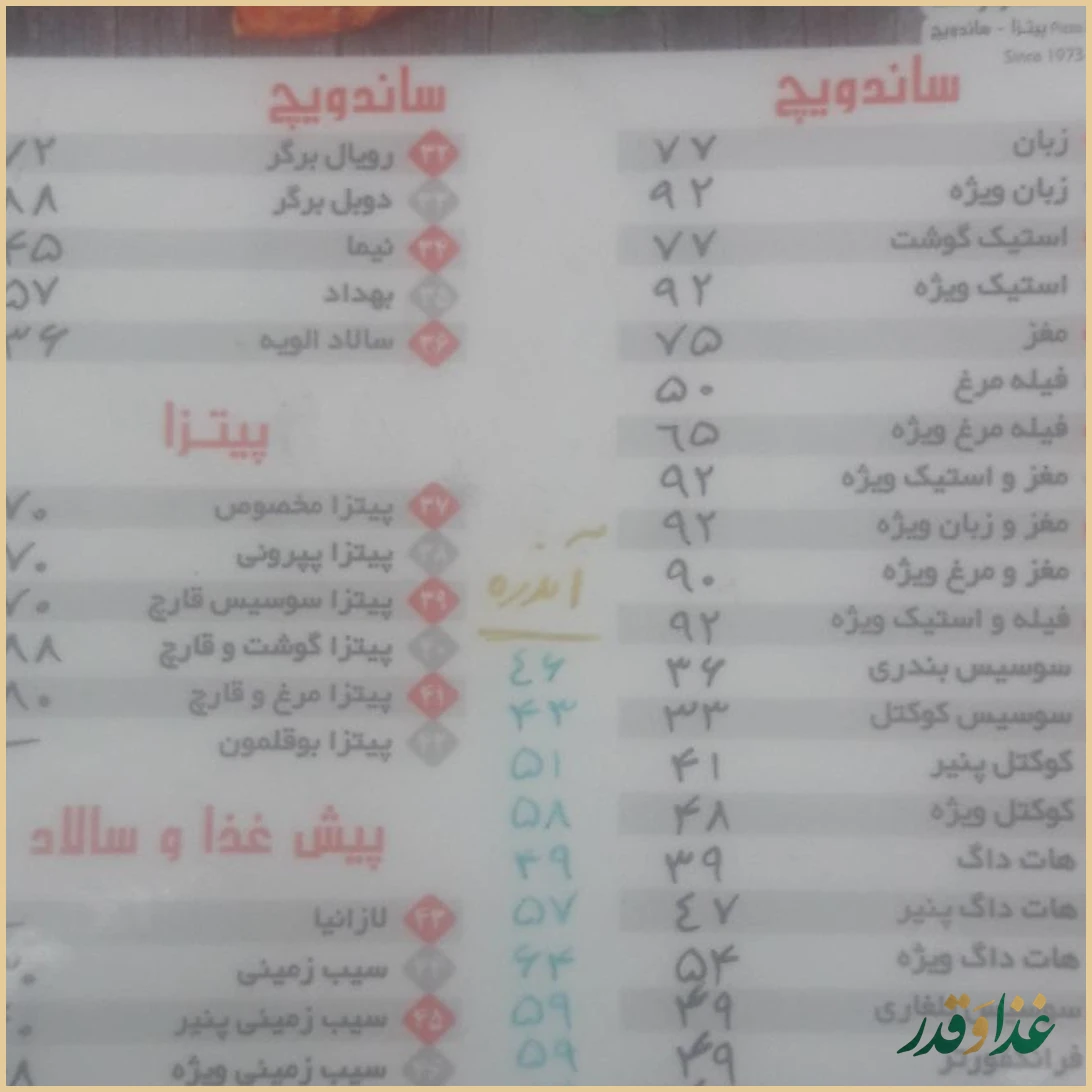 پیتزا - ساندویچ
Since 1973
ساندویچ
زبان ۷۷
زبان ویژه ۹۲
استیک گوشت ۷۷
استیک ویژه ۹۲
مغز ۷۵
فیله مرغ ۵۰
فیله مرغ ویژه ۶۵
مغز و استیک ویژه ۹۲
مغز و زبان ویژه ۹۲
مغز و مرغ ویژه ۹۰
فیله و استیک ویژه ۹۲
آندره
سوسیس بندری ۳۶ ۴۶
سوسیس کوکتل ۳۳ ۴۳
کوکتل پنیر ۴۱ ۵۱
کوکتل ویژه ۴۸ ۵۸
هات داگ ۳۹ ۴۹
هات داگ پنیر ۴۷ ۵۷
هات داگ ویژه ۵۴ ۶۴
۴۹ ۵۹
فرانکفورتر ۴۹ ۵۹
ساندویچ
۳۲ رویال برگر
۳۳ دوبل برگر ۸۸
۳۴ نیما ۴۵
۳۵ بهداد ۵۷
۳۶ سالاد الویه ۳۶
پیتـزا
۳۷ پیتزا مخصوص ۷۰
۳۸ پیتزا پپرونی ۷۰
۳۹ پیتزا سوسیس قارچ ۷۰
۴۰ پیتزا گوشت و قارچ ۸۸
۴۱ پیتزا مرغ و قارچ ۸۰
۴۲ پیتزا بوقلمون —
پیش غذا و سالاد
۴۳ لازانیا —
۴۴ سیب زمینی
۴۵ سیب زمینی پنیر
۴۶ سیب زمینی ویژه
غذا و قدر